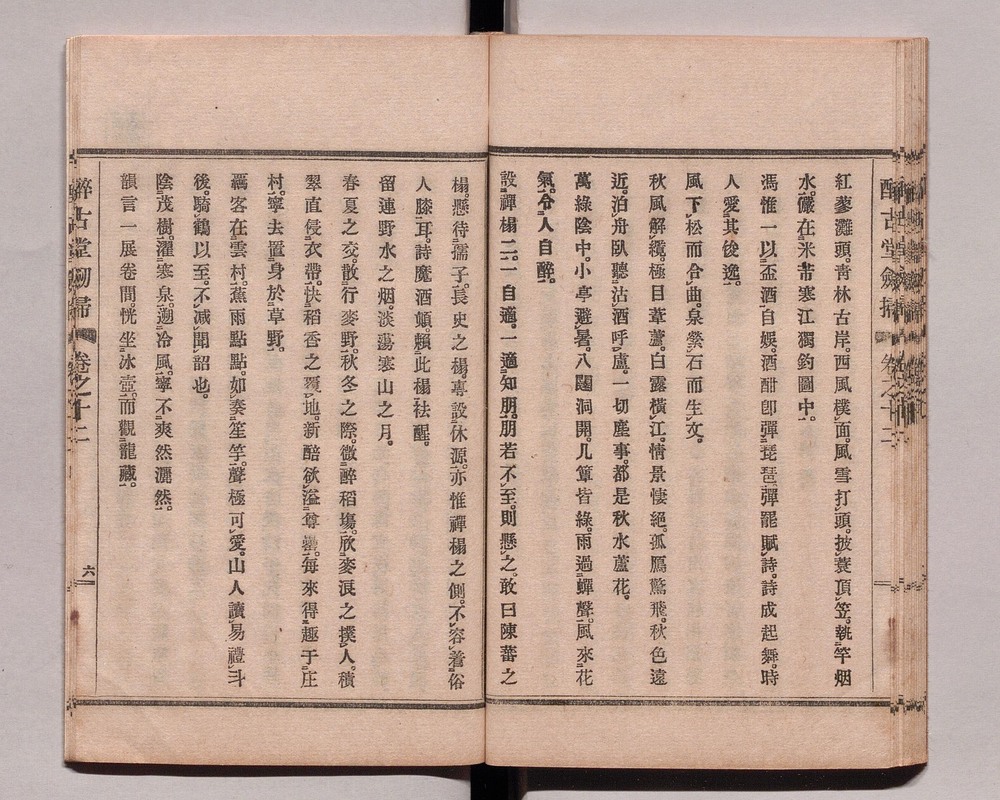 醉古堂劍掃
卷之十二
紅蓼灘頭。靑林古岸。西風撲面。風雪打頭。披蓑頂笠。執竿烟
水。儼在米芾寒江獨釣圖中。
馮惟一以盃酒自娛。酒酣卽彈琵琶。彈罷賦詩。詩成起舞。時
人愛其後逸。
風下松而合曲。泉縈石而生文。
秋風解纜。極目葦蘆。白露橫江。情景悽絕。孤鴈驚飛。秋色遠
近。泊舟臥聽。沽酒呼盧。一切塵事。都是秋水蘆花。
萬綠陰中。小亭避暑。八闥洞開。几簟皆綠。雨過蟬聲。風來花
氣。令人自醉。
設禪榻二。一自適。一適知朋。朋若不至。則懸之。敢曰陳蕃之
榻。懸待孺子。長史之榻。專設休源。亦惟禪榻之側。不容着俗
人膝耳。詩魔酒顚。賴此榻祛醒。
留連野水之烟。淡蕩寒山之月。
春夏之交。散行麥野。秋冬之際。微醉稻塲。欣麥浪之撲人。積
翠直侵衣帶。快稻香之覆地。新醅欲溢尊罍。每來得趣于庄
村。寧去置身於草野。
羈客在雲村。蕉雨點點。如奏笙竽。聲極可愛。山人讀易禮斗
後。騎鶴以至。不減聞韶也。
陰茂樹。濯寒泉。遡冷風。寧不爽然灑然。
韻言一展卷間。恍坐冰壺。而觀龍藏。
醉古堂劍掃
卷之十二
六